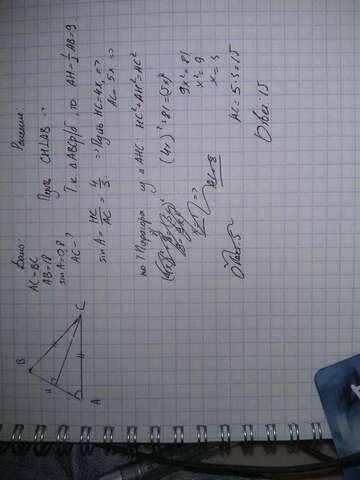 B
A
C
Дано:
AC=BC
AB=18
sinA=0,8
AC-?
Решение:
CH⊥AB =>
Т.к. △ABC р/б, то AH=½AB=9
sinA = HC/AC = 4/5 => Пусть HC=4x, =>
AC=5x =>
по т Пифагора из △AHC HC²+AH²=AC²
(4x)²+81=(5x)²
9x²=81
x²=9
x=3
AC=5·3=15
Ответ: 15